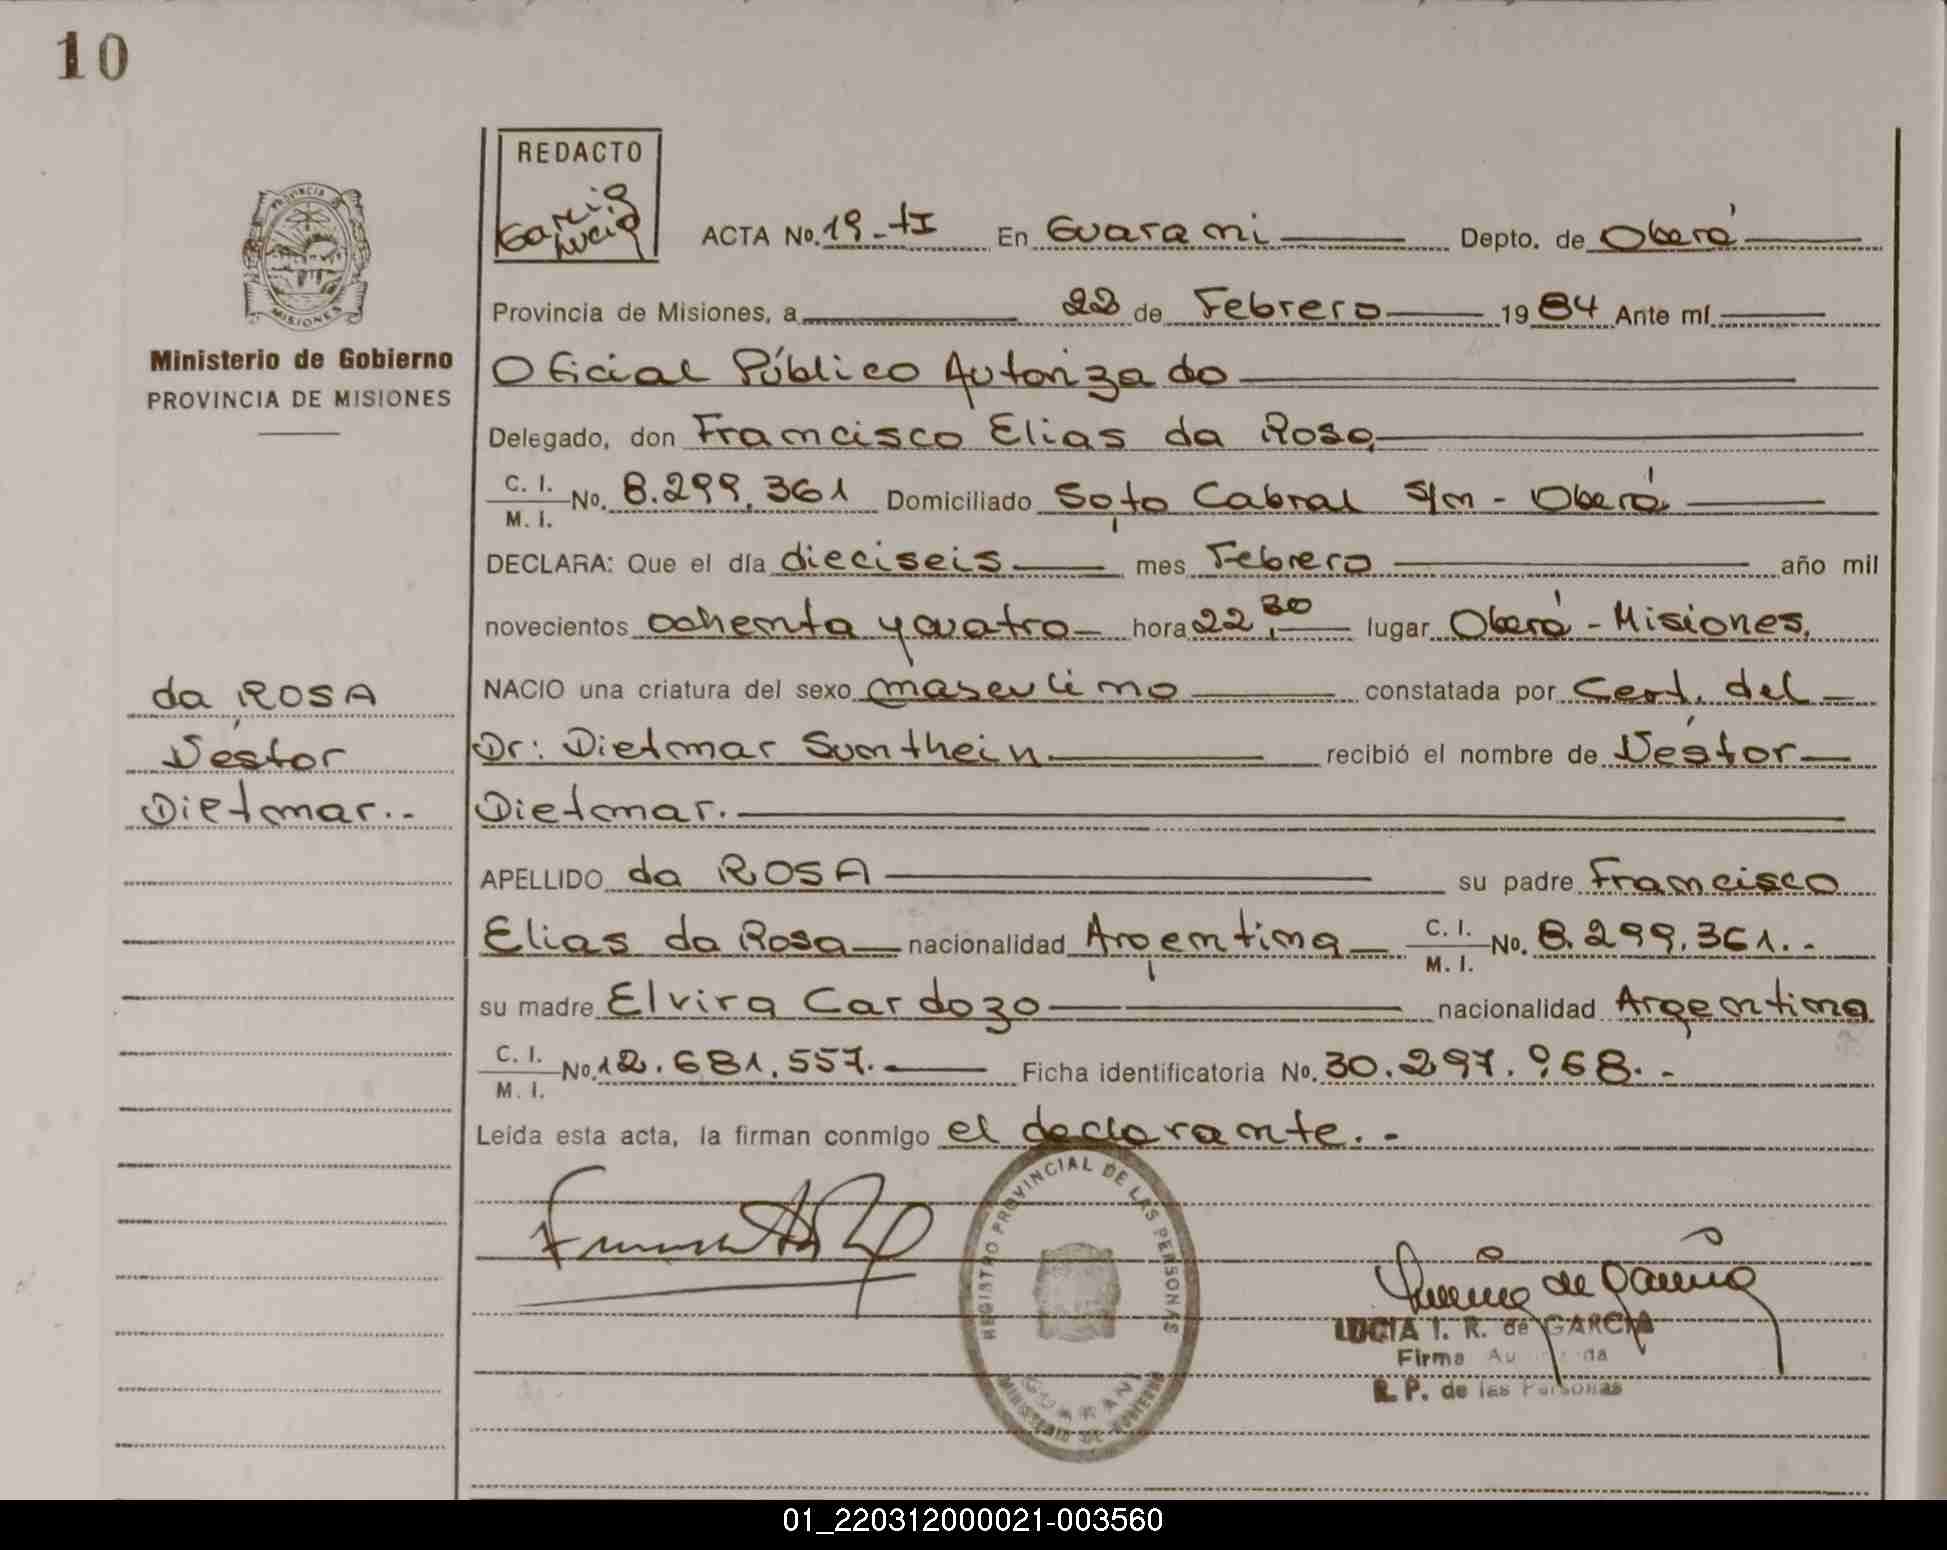 10
REDACTO
García
Lucia
ACTA No. 19-tI En Guarani Depto. de Oberá
Provincia de Misiones, a 22 de Febrero 1984 Ante mí
Ministerio de Gobierno
PROVINCIA DE MISIONES
Oficial Público Autorizado
Delegado, don Francisco Elias da Rosa
C. I.
M. I. No. 8.299.361 Domiciliado Soto Cabral S/n - Oberá
DECLARA: Que el día dieciseis mes Febrero año mil
novecientos ochenta y cuatro hora 22,30 lugar Oberá - Misiones.
NACIO una criatura del sexo masculino constatada por Cert. del
Dr: Dietmar Sumthein recibió el nombre de Néstor
Dietmar.
da ROSA
Néstor
Dietmar.-
APELLIDO da ROSA su padre Francisco
Elias da Rosa nacionalidad Argentina C. I.
M. I. No. 8.299.361.-
su madre Elvira Cardozo nacionalidad Argentina
C. I.
M. I. No. 12.681.557.- Ficha identificatoria No. 30.297.968.-
Leída esta acta, la firman conmigo el declarante.-
REGISTRO PROVINCIAL DE LAS PERSONAS
GUARANI
MINISTERIO DE GOBIERNO
LUCIA I. R. de GARCIA
Firma
R. P. de las Personas
01_220312000021-003560